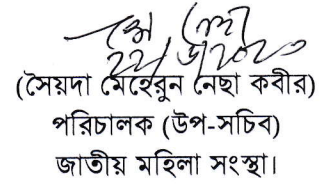 (সৈয়দা মেহেরুন নেছা কবীর)
পরিচালক (উপ-সচিব)
জাতীয় মহিলা সংস্থা।